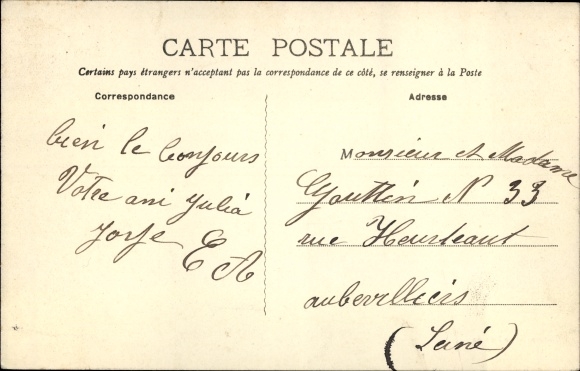 CARTE POSTALE
Certains pays étrangers n'acceptent pas la correspondance de ce côté, se renseigner à la Poste
Correspondance
Adresse
bien le bonjours
Votre ami Julia
E A
Monsieur et Madame
N 33
rue Heurteaut
aubervilliers
(Seine)